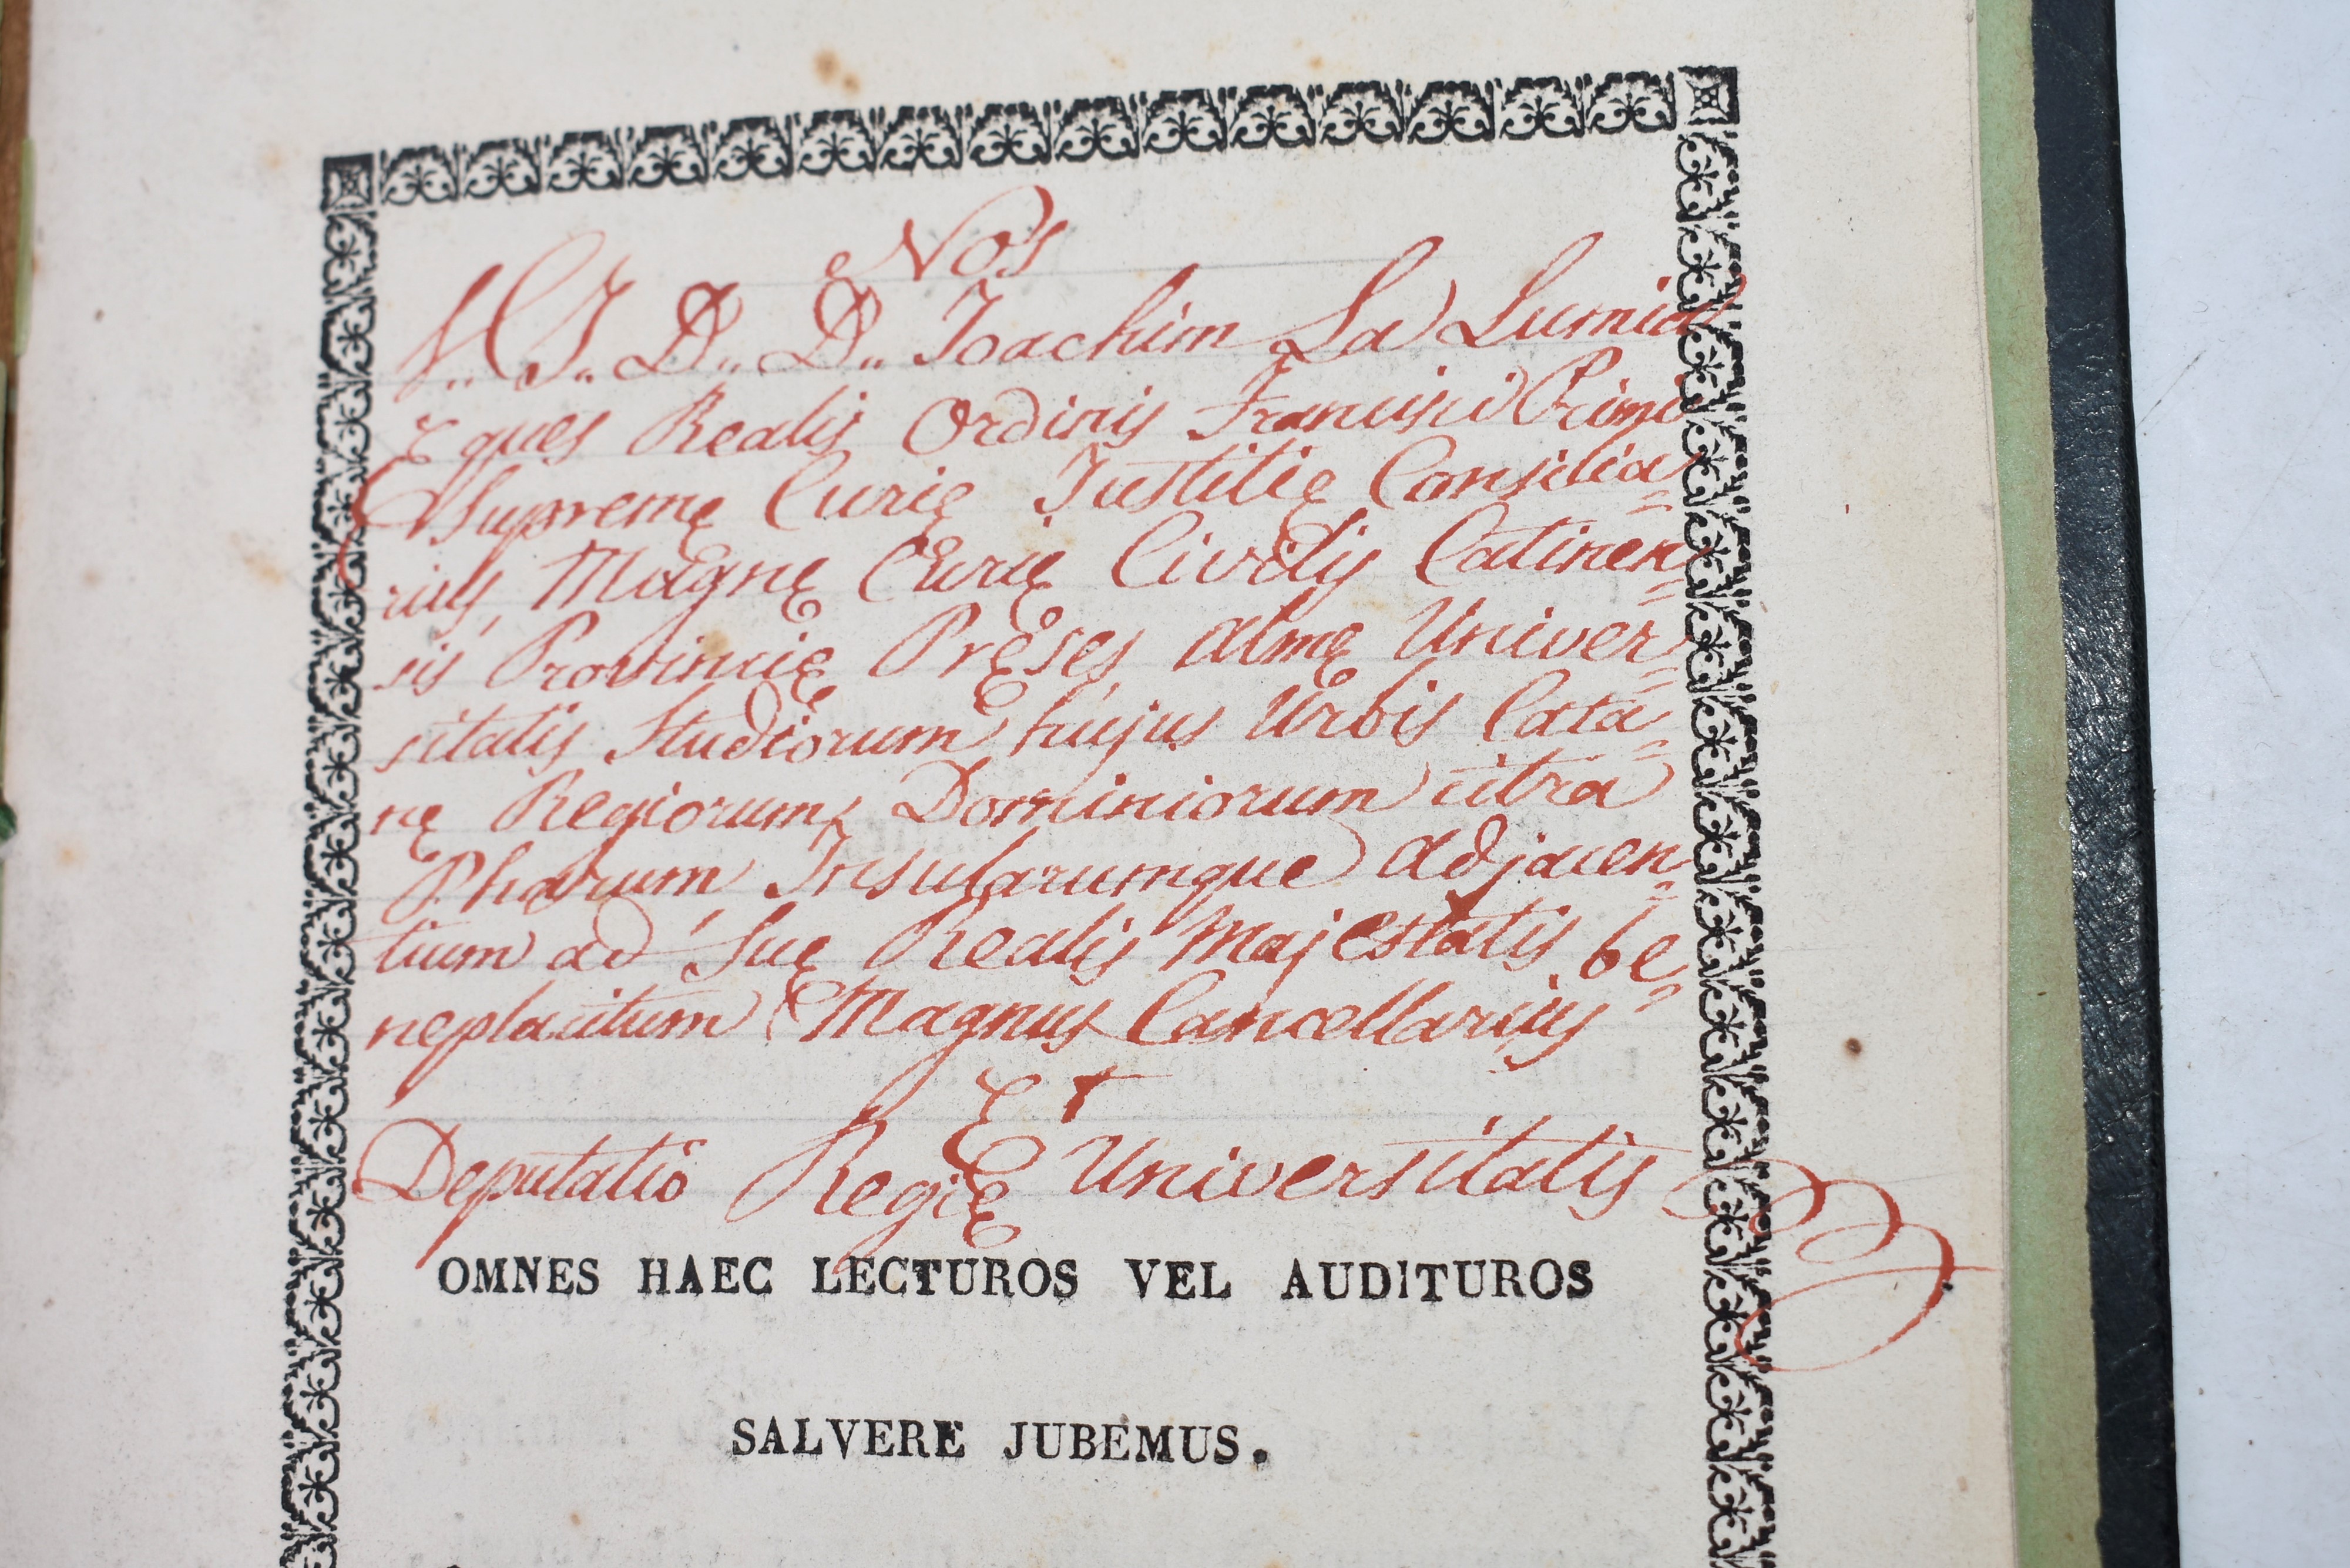 Nos
U. J. D. D. Joachim La Lumia
Eques Realis Ordinis Francisci Primi
Supremę Curię Justitię Consilia=
rius, Magnę Curię Civilis Catinen=
sis Provincię Pręses, Almę Univer=
sitatis Studiorum hujus Urbis Cata=
nę Regiorum, Dominiorum citra
Pharum, Insularumque adjacen=
tium ad Suę Realis Majestatis be=
neplacitum Magnus Cancellarius
Et
Deputatio Regię Universitatis
OMNES HAEC LECTUROS VEL AUDITUROS
SALVERE JUBEMUS.